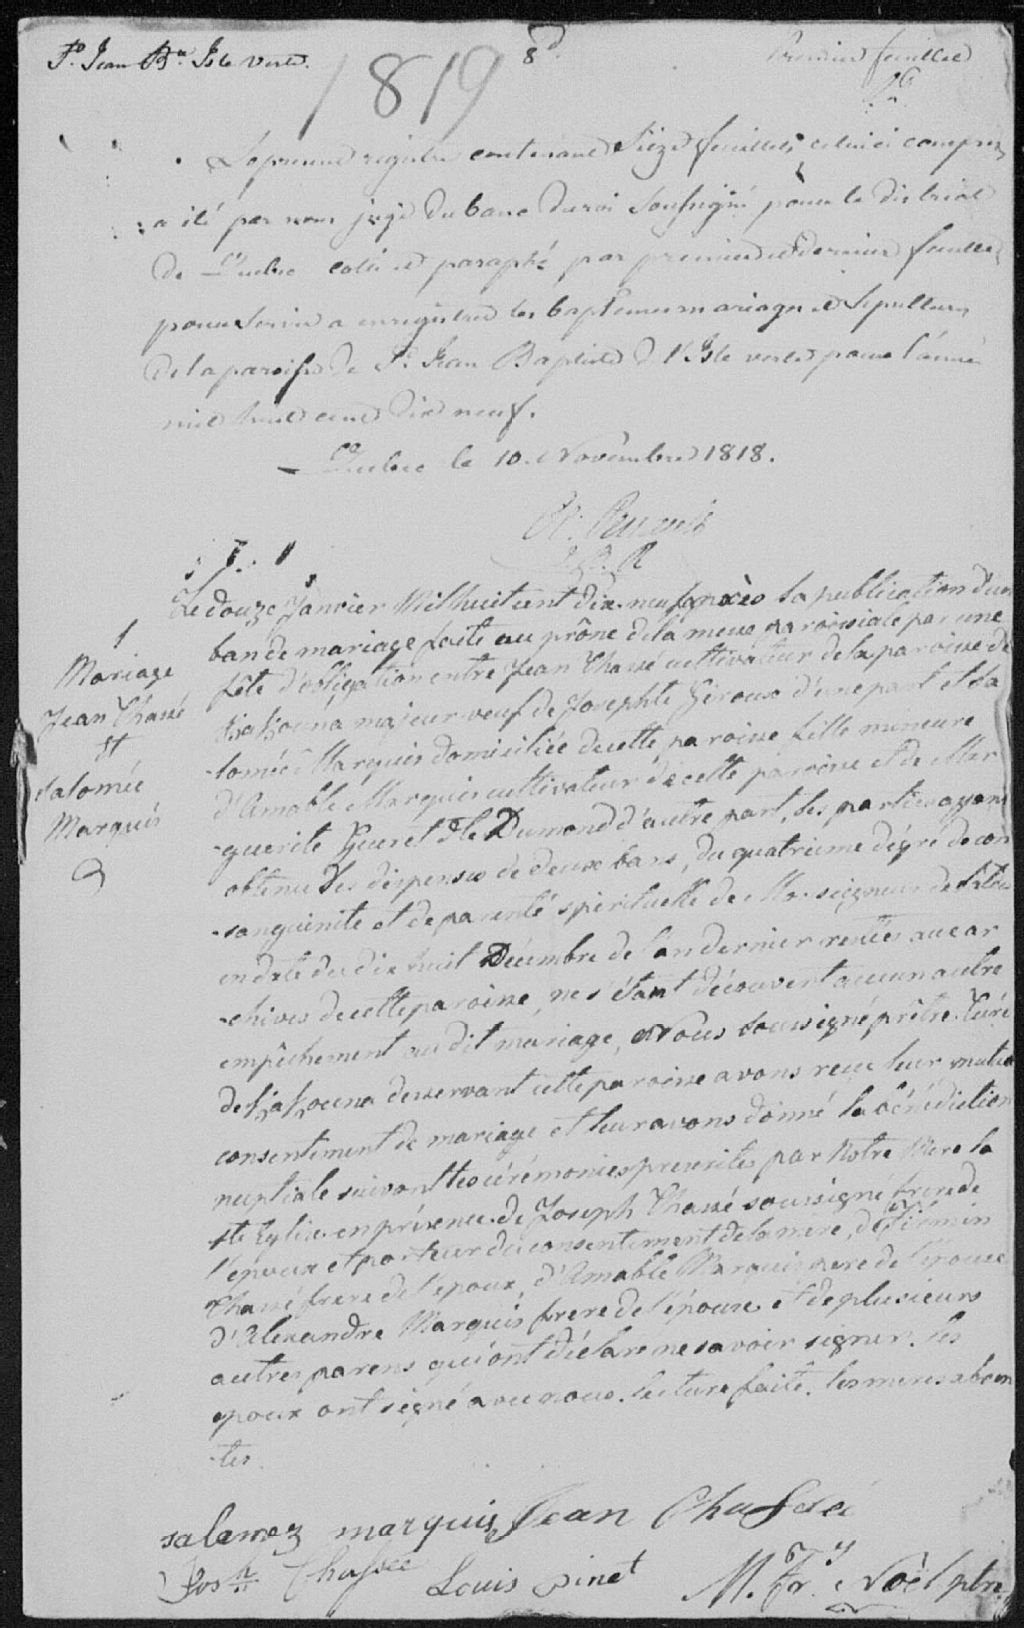 St. Jean Bte Isle verte. 1819 8d Premier feuillet
Le present registre contenant Sieze feuillets celui ci compris
a été par nous juge du banc du roi Soussigné pour le district
de Quebec cotté et paraphé par premier et dernier feuillet
pour servir a enregistrer les baptemes mariages et Sepultures
de la paroisse de St. Jean Baptiste de l'Isle verte pour l'année
mil huit cent dix neuf.
Quebec le 10. Novembre 1818.
Le douze Janvier Mil huit cent dix-neuf après la publication d'un
ban de mariage faite au prône de la messe paroissiale par une
fête d'obligation entre Jean Chassé cultivateur de la paroisse de
Kakouna majeur veuf de Josephte Giroux d'une part et Sa
-lomée Marquis domiciliée de cette paroisse fille mineure
d'Amable Marquis cultivateur de cette paroisse et de Mar
-guerite Gueret dle Dumond d'autre part, les parties ayans
obtenu des dispenses de deux bans, du quatrieme dégré de con
-sanguinité et de parenté spirituelle de Monseigneur de
en date du dix huit Décembre de l'an dernier remises aux ar
-chives de cette paroisse, ne s'étant découvert aucun autre
empêchement au dit mariage, Nous soussigné prêtre Curé
de Kakouna desservant cette paroisse avons reçu leur mutuel
consentement de mariage et leur avons donné la bénédiction
nuptiale suivant les cérémonies prescrites par Notre Mere la
Ste Eglise en présence de Joseph Chassé soussigné frere de
l'époux et porteur du consentement de la mere, de Firmin
Chassé frere de l'époux, d'Amable Marquis pere de l'épouse
d'Alexandre Marquis frere de l'épouse et de plusieurs
autres parens qui ont déclaré ne savoir signer. les
epoux ont signé avec nous. lecture faite. les meres absen
-tes.
1
Mariage
Jean Chassé
et
Salomée
Marquis
salomez marquis Jean Chassée
Josh Chassée Louis pinet M. Fr. Noël ptre